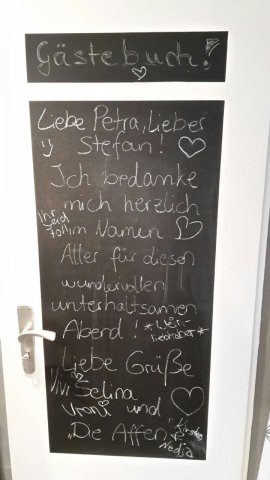 Gästebuch!
Liebe Petra, Lieber
Stefan!
Ich bedanke
mich herzlich
Ihr seid toll
im Namen
Aller für diesen
wundervollen
unterhaltsamen
Abend!
Liebe Grüße
Vivi
Selina
Vroni und
"Die Affen"
Kirsten
Nadja